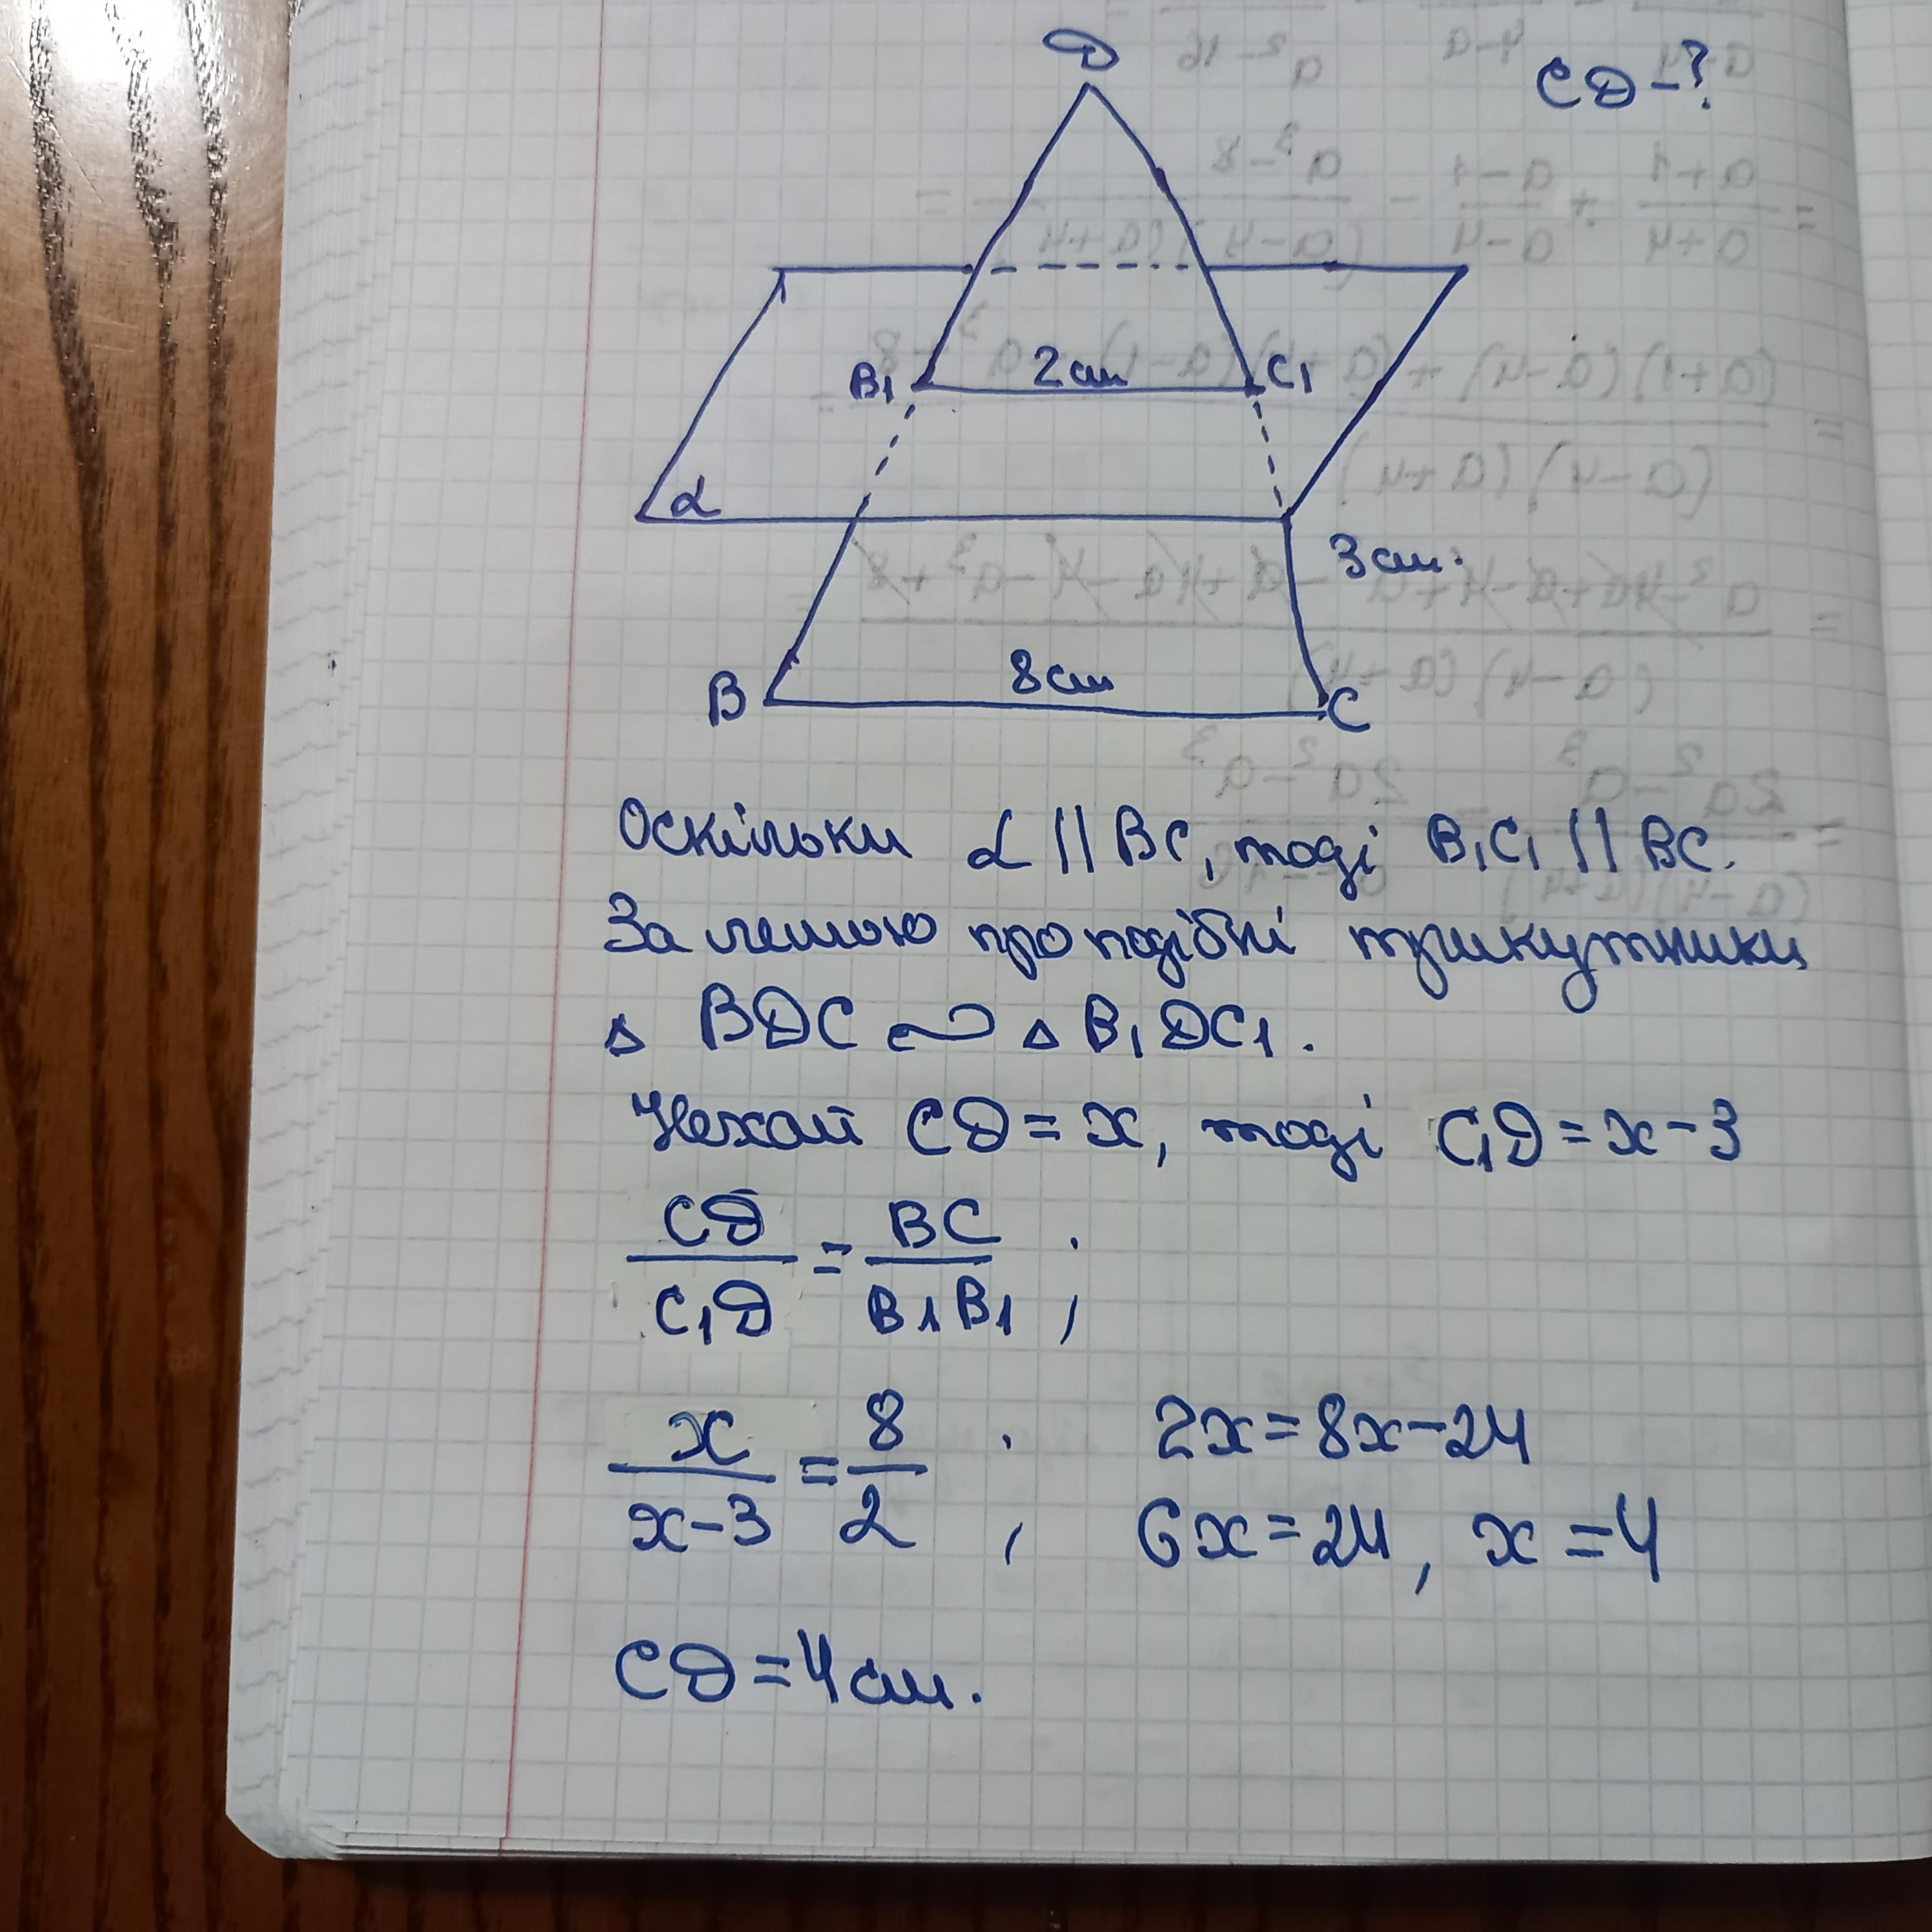 D
CD-?
B₁ 2см C₁
α
3см.
8см
B C
Оскільки α || BC, тоді B₁C₁ || BC.
За лемою про подібні трикутники
△ BDC ∾ △ B₁DC₁.
Нехай CD = x, тоді C₁D = x-3
CD/C₁D = BC/B₁B₁ ;
x/x-3 = 8/2 ; 2x = 8x-24
6x = 24, x = 4
CD = 4см.